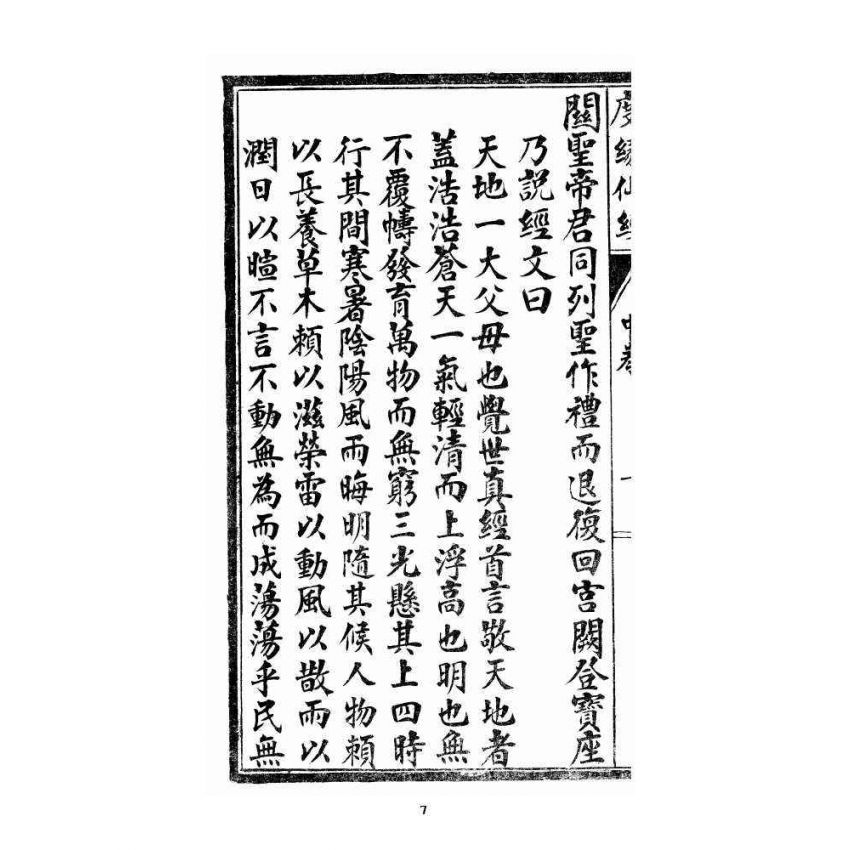 關聖帝君同列聖作禮而退復回宮闕登寶座
乃說經文曰
天地一大父母也覺世真經首言敬天地者
蓋浩浩蒼天一氣輕清而上浮高也明也無
不覆幬發育萬物而無窮三光懸其上四時
行其間寒暑陰陽風雨晦明隨其候人物賴
以長養草木賴以滋榮雷以動風以散雨以
潤日以暄不言不動無為而成蕩蕩乎民無
7